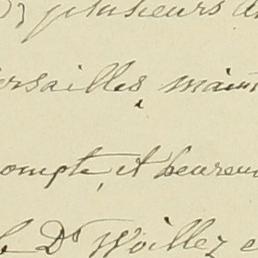 plusieurs
ersailles, main
ompte, et heureu
le Dr Woillez e